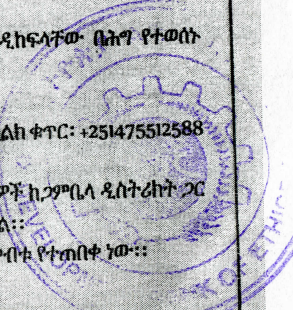 ዲከፍላቸው በሕግ የተወሰኑ
ልክ ቁጥር፡ +251475512588
ዎች ከጋምቤላ ዲስትሪክት ጋር
ል፡፡
ብቱ የተጠበቀ ነው፡፡